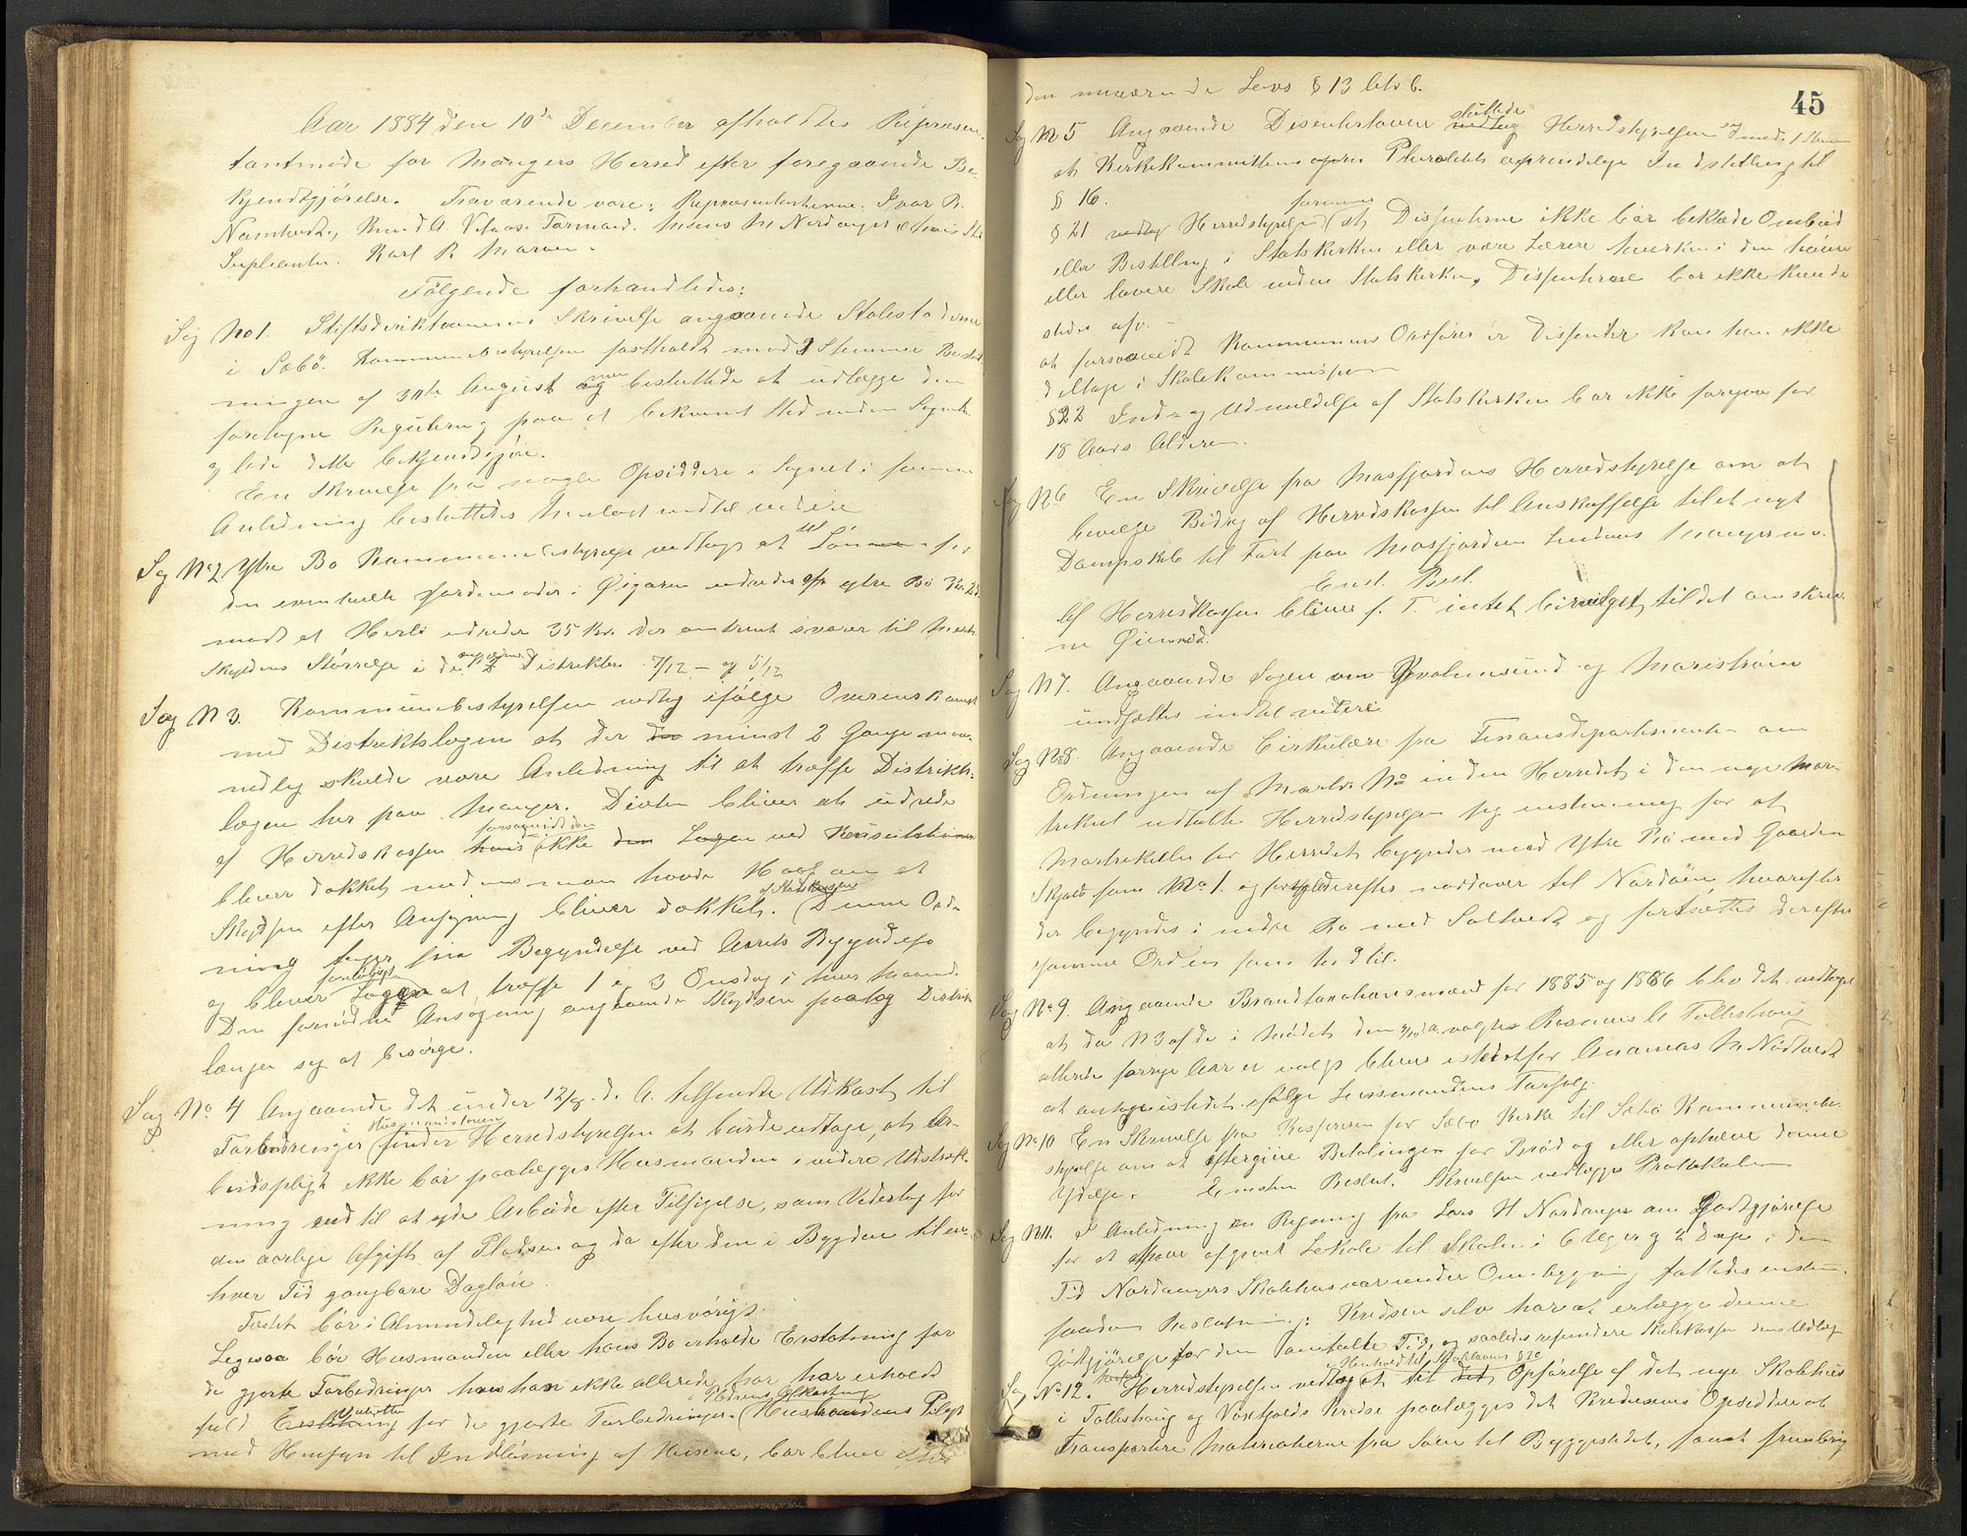 Aar 1884 den 10de December afholdtes Repræsen-
tantmøde for Mangers Herred efter foregaaende Be-
kjendtgjørelse. Fraværende vare: Repræsentanterne: Ivar R.
Namtvedt, Knud A. Formand. Mons M Nordanger
Supleanter. Karl R. Maroen.
Følgende forhandledes:
Sag No 1. Stiftsdirektionens Skrivelse angaaende Skolestaderne
i Sæbø. Kommunebestyrelsen fastholdt med 9 Stemmer Beslut
ningen af 30te August men besluttede at udlægge den
foretagne Regulering paa et bekvemt Sted inden Sognet
og lade dette bekjendtgjøre.
En Skrivelse fra nogle Opsiddere i Sognet i samme
Anledning besluttedes henlagt indtil videre
Sag No 2 Ytre Bø Kommunebestyrelse vedtog at til Lönnen for
den eventuelle Jordemoder i Øigaren udredes af ytre Bø
mod at Herlø udreder 35 Kr. der omtrent svarer til Matr.
Skyldens Størrelse i de Distrikter 7/12 - og 5/12
Sag N 3. Kommunebestyrelsen vedtog ifølge Overenskomst
med Distriktslægen at der minst 2 Gange maa-
nedlig skulde være Anledning til at træffe Distrikts-
lægen her paa Manger. Diæten bliver at udrede
af Herredskassen forsaavidt den ikke ved Konsulationer
bliver dækket medens man havde Haab om at
Skydsen efter Ansøgning bliver dækket af Statskassen. (Denne Ord-
ning tager sin Begyndelse ved Aarets Begyndelse
og bliver Lægen foreløbigt at træffe 1 og 3 Onsdag i hver Maaned.
Den fornødne Ansøgning angaaende Skydsen paatog Distrikts
lægen sig at besørge.
Sag No 4 Angaaende det under 12/8 d. A. tilsendte Udkast til
Forandringer i Husmandsloven finder Herredstyrelsen at burde udtage, at Ar-
beidspligt ikke bør paalægges Husmanden i videre Udstræk-
ning end til at yde Arbeide efter Tilsigelse, som Vederlag for
den aarlige Afgift af Pladsen og da efter den i Bygden til en-
hver Tid gangbare Dagløn.
Fæstet bør i Almindelighed være livsvarigt.
Ligesaa bør Husmanden eller hans Bo erholde Erstatning for
de gjorte Forbedringer hvis han ikke allerede har erholdt
fuld Erstatning for de gjorte Forbedringer. (Husmandens Pligt
med Hensyn til Indløsning af Husene, bør blive efter
45
den nuværende Lovs § 13 litr b.
Sag N 5 Angaaende Disenterloven sluttede Herredstyrelsen sig med 1 Stemme
at Kirkekommitteens Pluralitets oprindelige Indstilling til
§ 16.
§ 21 vedtog Herredstyrelsen (at Dissenterne ikke bør beklæde Ombud
eller Bestilling i Statskirken eller være Lærere hverken i den høiere
eller lavere Skole inden Statskirken, Dissenterne bør ikke kunde
stedes afv. –
at forsaavidt Kommunens Ordfører er Dissenter kan han ikke
deltage i Skolekommissionen
§ 22 Ind- og Udmeldelse af Statskirken bør ikke foregaa før
18 Aars Alderen.
Sag N 6 En Skrivelse fra Masfjordens Herredstyrelse om at
bevilge Bidrag af Herredskassen til Anskaffelse til et nyt
Dampskib til Fart paa Masfjorden Lindaas Manger m.v.
Enst. Besl.
Af Herredskassen bliver f. T. intet bevilget til det omskrev-
ne Øiemed.
Sag N 7. Angaaende Sagen om Kvalnesund og Maristrøm
undsættes indtil videre
Sag N 8. Angaaende Cirkulære fra Finansdepartementet om
Ordningen af Martr. No inden Herredet i den nye Mar-
trikul udtalte Herredstyrelsen sig enstemmig for at
Martrikulen for Herredet begynder med Ytre Bø med Gaarden
Skjold som No 1. og fortsættes derefter nordover til Nordøen, hvorefter
der begyndes i indre Bø med Soltvedt og fortsættes derefter
samme Orden som hidtil.
Sag No 9. Angaaende Brandtaxationsmænd for 1885 og 1886 blev det vedtaget
at da N 3 af de i Mødet den d. A. valgte Rasmus A Tolleshaug
allerede forrige Aar er valgt bliver istedetfor Ananias M Nørtvedt
at antage istedet ifølge Lensmandens Forslag.
Sag No 10 En Skrivelse fra Kasseren for Sæbø Kirke til Sæbø Kommunebe-
styrelse om at eftergive Betalingen for Brød og eller ophæve denne
Ydelse. Enstem Beslut. Skrivelsen vedlægges Protokolen
Sag N 11. I Anledning en Regning fra Lars H Nordanger om Godtgjørelse
for at have afgivet Lokale til Skolen i 6 Uger og 2 Dage i den
Tid Nordangers Skolehus var under Ombygning fattedes enstem.
saadan Beslutning: Kredsen selv har at erlægge denne
Godtgjørelse for den omtalte Tid, og saaledes refundere Skolekassen dens Udlæg
Sag No 12. Herredstyrelsen vedtog i Henhold til Skoleloven § 20 at til Opførelse af det nye Skolehus
i Tolleshaug og Vaxefjolds Kreds paalægges det Kredsenes Opsiddere at
transportere Materialerne fra Søen til Byggestedet, samt frembring